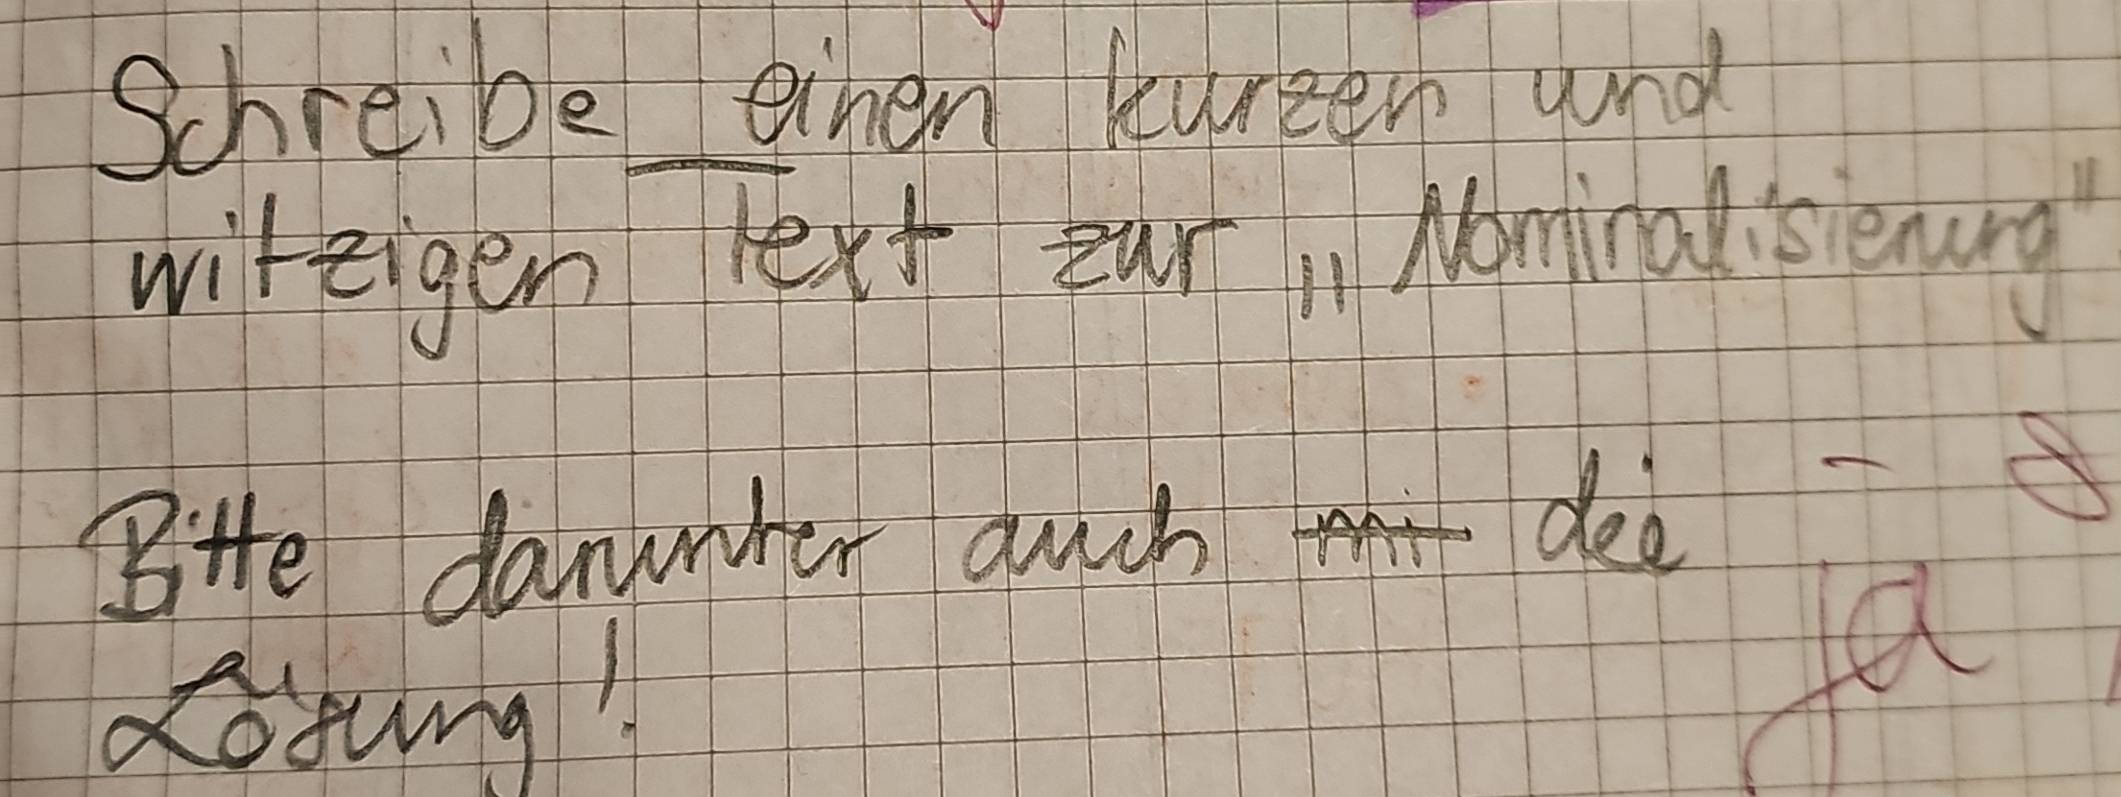 Schreibe einen kurzen und
witzigen Text zur „Nominalisierung"
Bitte darunter auch die
Lösung!
ja